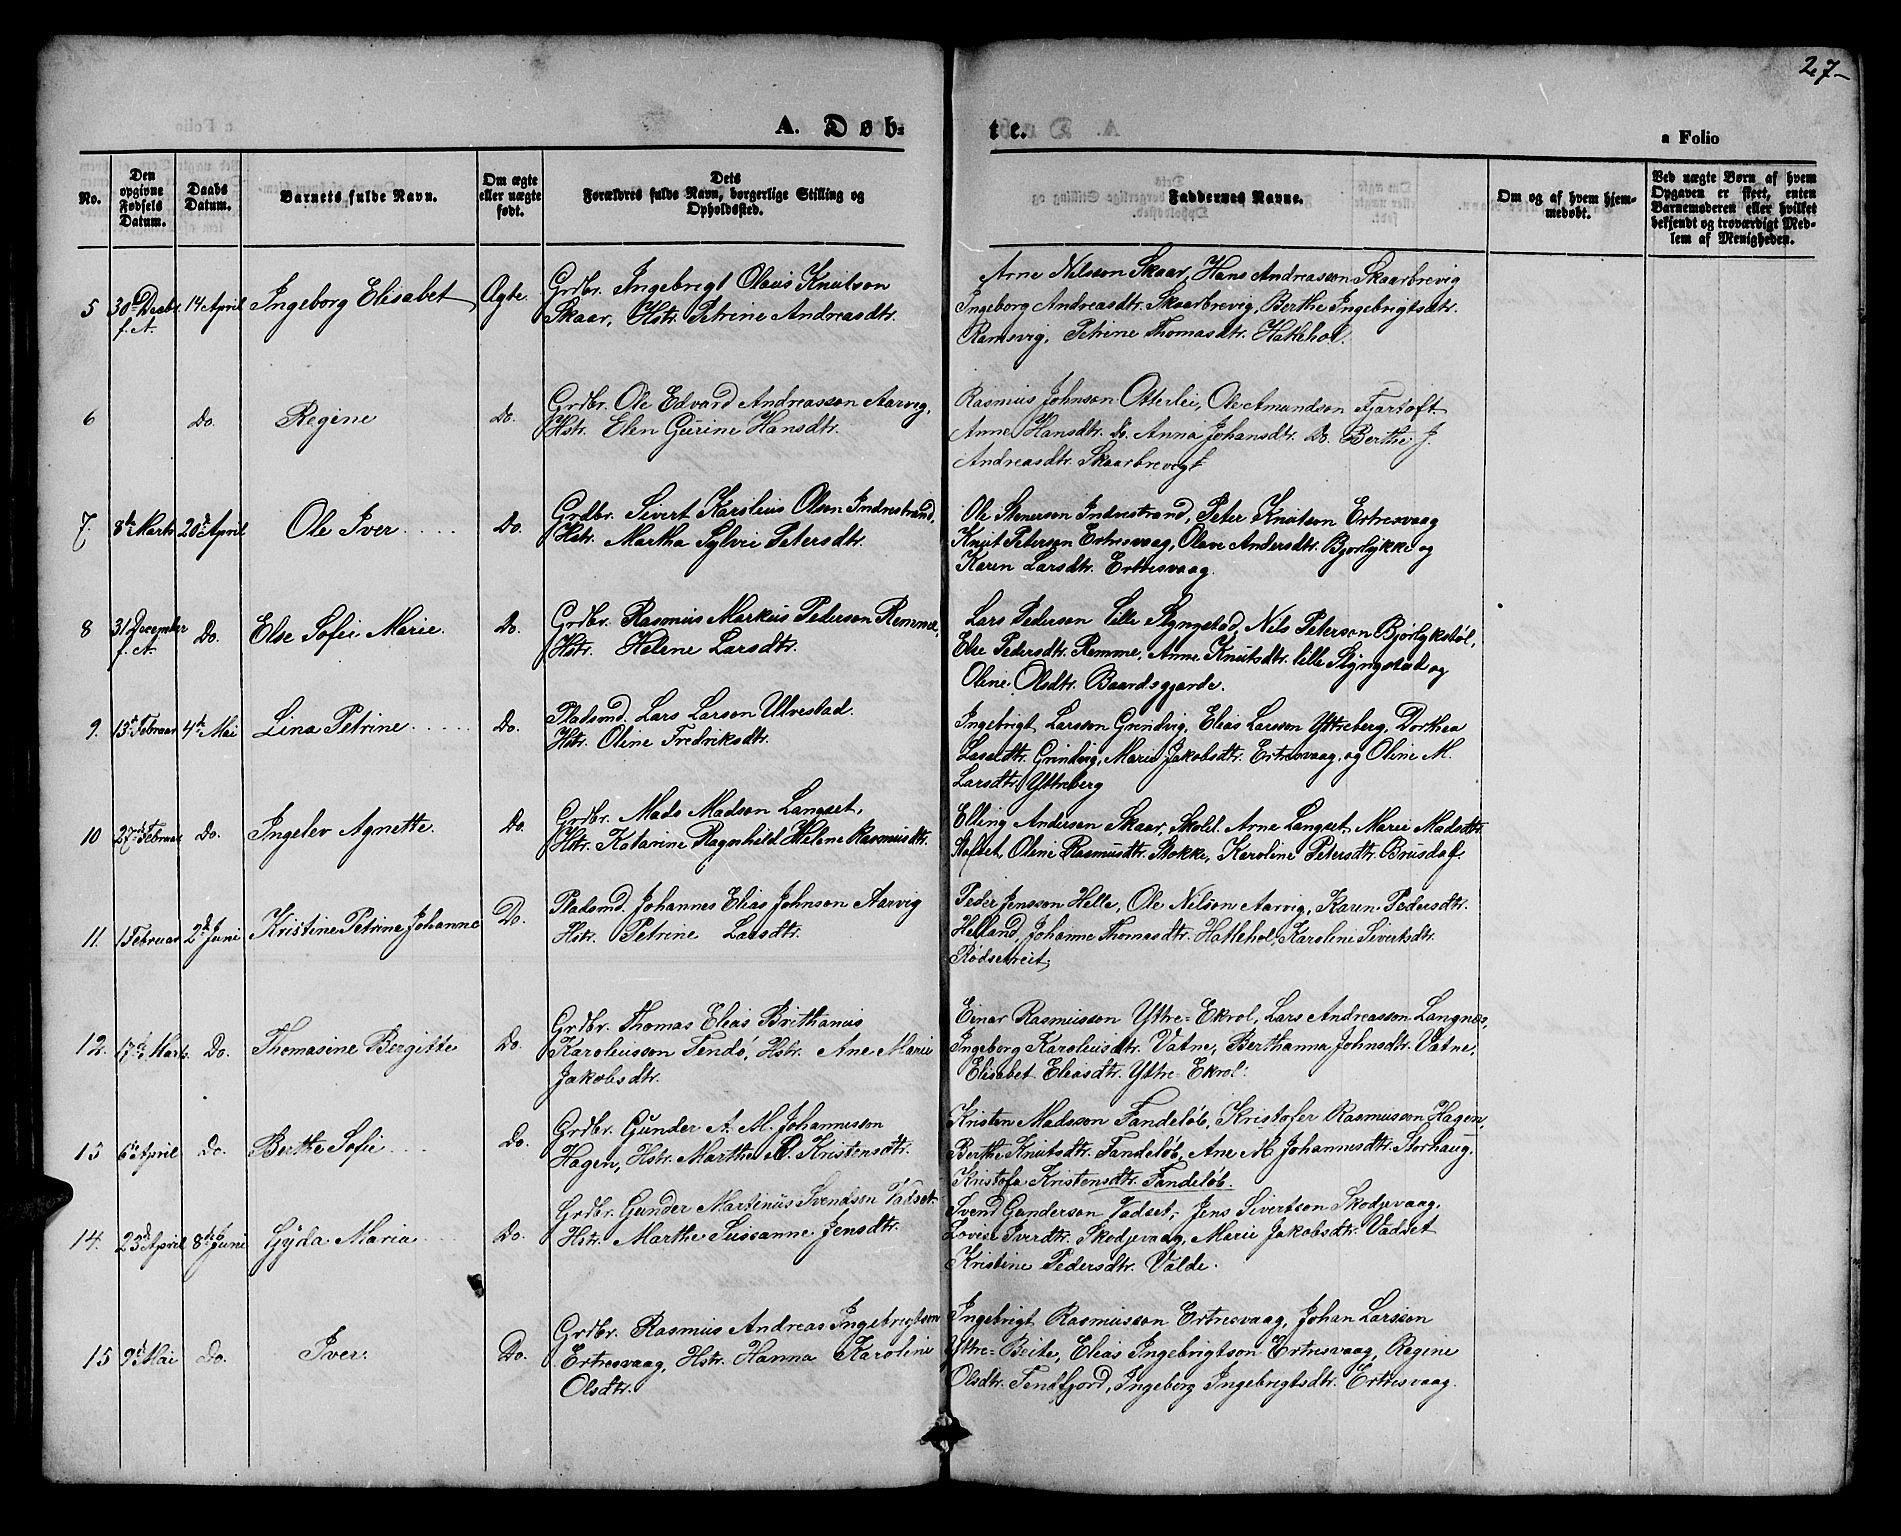 27
A. Døb-
te.
a Folio
No.
Den opgivne Fødsels Datum.
Daabs Datum.
Barnets fulde Navn.
Om ægte eller uægte født.
Dets Forældres fulde Navn, borgerlige Stilling og Opholdssted.
Faddernes Navne.
Om og af hvem hjemmedøbt.
Ved uægte Børn af hvem Opgaven er skeet, enten Barnemoderen eller hvilket bekjendt og troværdigt Medlem af Menigheden.
5 30te Decbr. f.A. 14 April Ingeborg Elisabet Ægte.
Grdbr. Ingebrigt Olaus Knutson
Skaar, Hstr. Petrine Andreasdtr.
Arne Nilsson Skaar, Hans Andreasson Skaarbrevig
Ingeborg Andreasdtr. Skaarbrevig, Berthe Ingebrigtsdtr.
Ramsvig, Petrine Thomasdtr. Hatlehol.
6 Do. Regine Do.
Grdbr. Ole Edvard Andreasson Aarvig,
Hstr. Elen Gurine Hansdtr.
Rasmus Johnson Otterlei, Ole Amundson Fjørtoft
Anne Hansdtr. Do. Anna Johansdtr. Do. Berthe J.
Andreasdtr. Skaarbrevig
7. 8de Marts 20de April Ole Iver Do.
Grdbr. Sivert Karolius Olsen Indrestrand,
Hstr. Martha Sylvei Petersdtr.
Ole Stenerson Indrestrand, Peter Knutson Ertresvaag
Knut Peterson Ertresvaag, Olave Andersdtr. Bjørlykke og
Karen Larsdtr. Ertresvaag.
8 31 December f.A. Do. Else Sofie Marie. Do.
Grdbr. Rasmus Markus Pederson Remme,
Hstr. Helene Larsdtr.
Lars Pederson Lille Slyngstad, Nils Peterson Bjørlyksbøl,
Else Pedersdtr. Remme, Anne Knutsdtr. lille Slyngstad og
Oline Olsdtr. Baardsgjærde.
9. 13de Februar 4de Mai Lina Petrine Do.
Pladsmd. Lars Larson Ulvestad.
Hstr. Oline Fredriksdtr.
Ingebrigt Larsson Grindvig, Elias Larsson Yttreberg, Dorthea
Grindvig, Marie Jakobsdtr. Ertresvaag, og Oline M.
Larsdtr. Yttreberg
10 27de Februar Do. Ingelev Agnette. Do.
Grdbr. Mads Madson Langset,
Hstr. Katarine Ragnhild Helene Rasmusdtr.
Elling Andersen Skaar, Skoll. Arne Langset, Marie Madsdtr.
Slafset, Oline Rasmusdtr. Stokke, Karoline Petersdtr. Brusdal.
11. 1 Februar 2den Juni Kristine Petrine Johanne Do.
Pladsmd. Johannes Elias Johnson Aarvig
Hstr. Petrine Larsdtr.
Peder Jensson Helle, Ole Nilson Aarvig, Karen Pedersdtr.
Helland, Johanne Thomasdtr. Hatlehol, Karoline Sivertsdtr.
Rødsetreit,
12. 17de Marts. Do. Thomasine Bergitte Do.
Grdbr. Thomas Elias Brithanius
Karoliusson Tendø, Hstr. Ane Marie
Jakobsdtr.
Einar Rasmusson Yttre-Ekrol, Lars Andreasson Langnes,
Ingeborg Karoliusdtr. Vatne, Berthanna Johnsdtr. Vatne,
Elisabet Eleasdtr. Yttre-Ekrol.
13 6te April Do. Berthe Sofie Do.
Grdbr. Gunder A. M. Johannesson
Hagen, Hstr. Marthe O. Kristensdtr.
Kristen Madsson Fandeløb, Kristofer Rasmusson Hagen,
Berthe Knutsdtr. Fandeløb, Ane M. Johannesdtr. Storhaug,
Kristofa Kristensdtr. Fandeløb.
14. 23de April 8de Juni Gyda Maria Do.
Grdbr. Gunder Martinus Svendson Vadset
Hstr. Marthe Sussanne Jensdtr.
Svend Gunderson Vadset, Jens Sivertson Skodjevaag,
Lovise Iverdtr. Skodjevaag, Marie Jakobsdtr. Vadset
Kristine Pedersdtr. Valde.
15 9de Mai Do. Iver. Do.
Grdbr. Rasmus Andreas Ingebrigtson
Ertresvaag, Hstr. Hanna Karoline
Olsdtr.
Ingebrigt Rasmusson Ertresvaag, Johan Larsson
Yttre-Beite, Elias Ingebrigtson Ertresvaag, Regine
Olsdtr. Tendfjord, Ingeborg Ingebrigtsdtr. Ertresvaag.